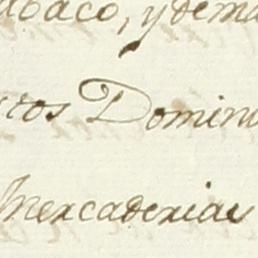 tabaco, y dema
stos Domini
Mercaderias